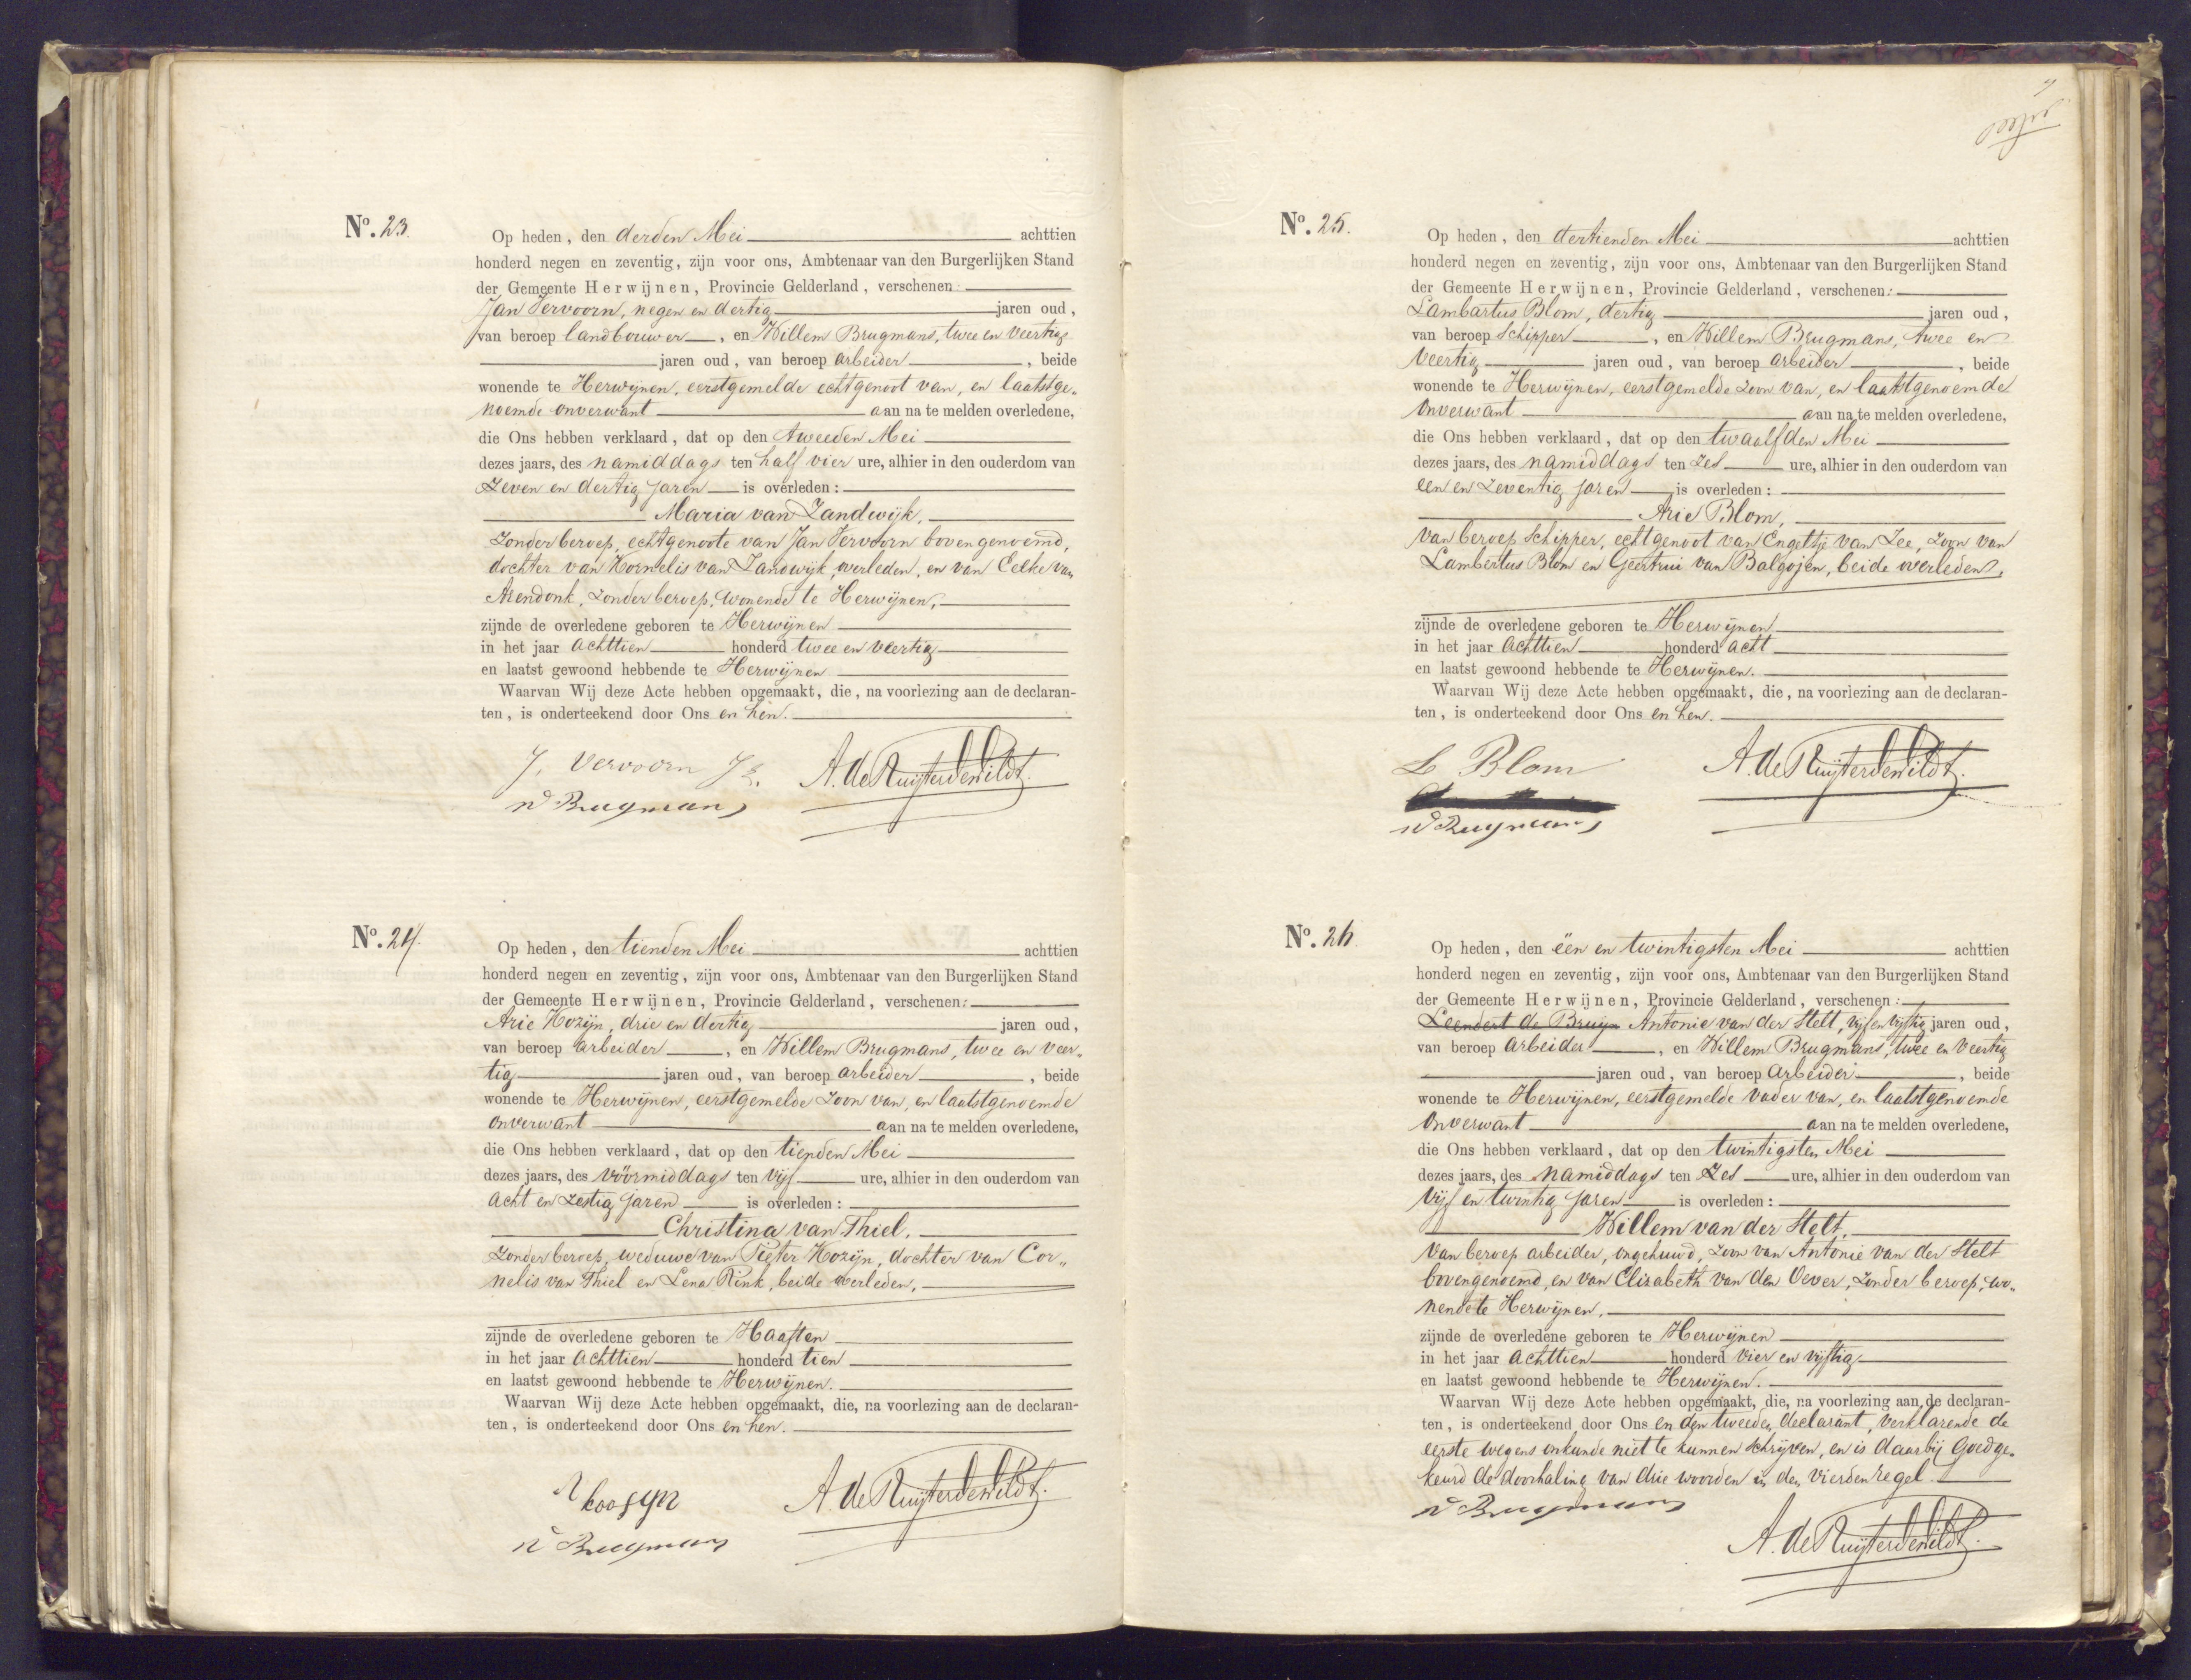 Nº. 23.
Op heden, den derden Mei achttien
honderd negen en zeventig, zijn voor ons, Ambtenaar van den Burgerlijken Stand
der Gemeente Herwijnen, Provincie Gelderland, verschenen:
Jan Vervoorn, negen en dertig jaren oud,
van beroep landbouwer, en Willem Brugmans, twee en veertig
jaren oud, van beroep arbeider, beide
wonende te Herwijnen, eerstgemelde echtgenoot van, en laatstge-
noemde onverwant aan na te melden overledene,
die Ons hebben verklaard, dat op den tweeden Mei
dezes jaars, des namiddags ten half vier ure, alhier in den ouderdom van
zeven en dertig jaren is overleden:
Maria van Zandwijk,
zonder beroep, echtgenoote van Jan Vervoorn bovengenoemd,
dochter van Kornelis van Zandwijk, overleden, en van Eelke van
Arendonk, zonder beroep, wonende te Herwijnen,
zijnde de overledene geboren te Herwijnen
in het jaar achttien honderd twee en veertig
en laatst gewoond hebbende te Herwijnen
Waarvan Wij deze Acte hebben opgemaakt, die, na voorlezing aan de declaran-
ten, is onderteekend door Ons en hen.
J. Vervoorn Jz. A. de Ruijter de Wildt.
W Brugmans
Nº. 24.
Op heden, den tienden Mei achttien
honderd negen en zeventig, zijn voor ons, Ambtenaar van den Burgerlijken Stand
der Gemeente Herwijnen, Provincie Gelderland, verschenen:
Arie Kozijn, drie en dertig jaren oud,
van beroep arbeider, en Willem Brugmans, twee en veer-
tig jaren oud, van beroep arbeider, beide
wonende te Herwijnen, eerstgemelde zoon van, en laatstgenoemde
onverwant aan na te melden overledene,
die Ons hebben verklaard, dat op den tienden Mei
dezes jaars, des vóórmiddags ten vijf ure, alhier in den ouderdom van
acht en zestig jaren is overleden:
Christina van Thiel,
zonder beroep, weduwe van Pieter Kozijn, dochter van Cor-
nelis van Thiel en Lena Rink, beide overleden,
zijnde de overledene geboren te Haaften
in het jaar achttien honderd tien
en laatst gewoond hebbende te Herwijnen.
Waarvan Wij deze Acte hebben opgemaakt, die, na voorlezing aan de declaran-
ten, is onderteekend door Ons en hen.
koosyn A. de Ruijter de Wildt.
W Brugmans
Nº. 25.
Op heden, den dertienden Mei achttien
honderd negen en zeventig, zijn voor ons, Ambtenaar van den Burgerlijken Stand
der Gemeente Herwijnen, Provincie Gelderland, verschenen:
Lambartus Blom, dertig jaren oud,
van beroep schipper, en Willem Brugmans, twee en
veertig jaren oud, van beroep arbeider, beide
wonende te Herwijnen, eerstgemelde zoon van, en laatstgenoemde
onverwant aan na te melden overledene,
die Ons hebben verklaard, dat op den twaalfden Mei
dezes jaars, des namiddags ten zes ure, alhier in den ouderdom van
een en zeventig jaren is overleden:
Arie Blom,
van beroep schipper, echtgenoot van Engeltje van Zee, zoon van
Lambertus Blom en Geertrui van Balgojen, beide overleden,
zijnde de overledene geboren te Herwijnen
in het jaar achttien honderd acht
en laatst gewoond hebbende te Herwijnen.
Waarvan Wij deze Acte hebben opgemaakt, die, na voorlezing aan de declaran-
ten, is onderteekend door Ons en hen.
L Blom A. de Ruijter de Wildt.
W Brugmans
Nº. 26
Op heden, den één en twintigsten Mei achttien
honderd negen en zeventig, zijn voor ons, Ambtenaar van den Burgerlijken Stand
der Gemeente Herwijnen, Provincie Gelderland, verschenen:
Leendert de Bruijn Antonie van der Stelt, vijf en vijftig jaren oud,
van beroep arbeider, en Willem Brugmans, twee en veertig
jaren oud, van beroep arbeider, beide
wonende te Herwijnen, eerstgemelde vader van, en laatstgenoemde
onverwant aan na te melden overledene,
die Ons hebben verklaard, dat op den twintigsten Mei
dezes jaars, des namiddags ten zes ure, alhier in den ouderdom van
vijf en twintig jaren is overleden:
Willem van der Stelt,
van beroep arbeider, ongehuwd, zoon van Antonie van der Stelt
bovengenoemd, en van Elizabeth van den Oever, zonder beroep, wo-
nende te Herwijnen,
zijnde de overledene geboren te Herwijnen
in het jaar achttien honderd vier en vijftig
en laatst gewoond hebbende te Herwijnen.
Waarvan Wij deze Acte hebben opgemaakt, die, na voorlezing aan de declaran-
ten, is onderteekend door Ons en den tweeden declarant, verklarende de
eerste wegens onkunde niet te kunnen schrijven, en is daarbij goedge-
keurd de doorhaling van drie woorden in den vierden regel.
W Brugmans
A. de Ruijter de Wildt.